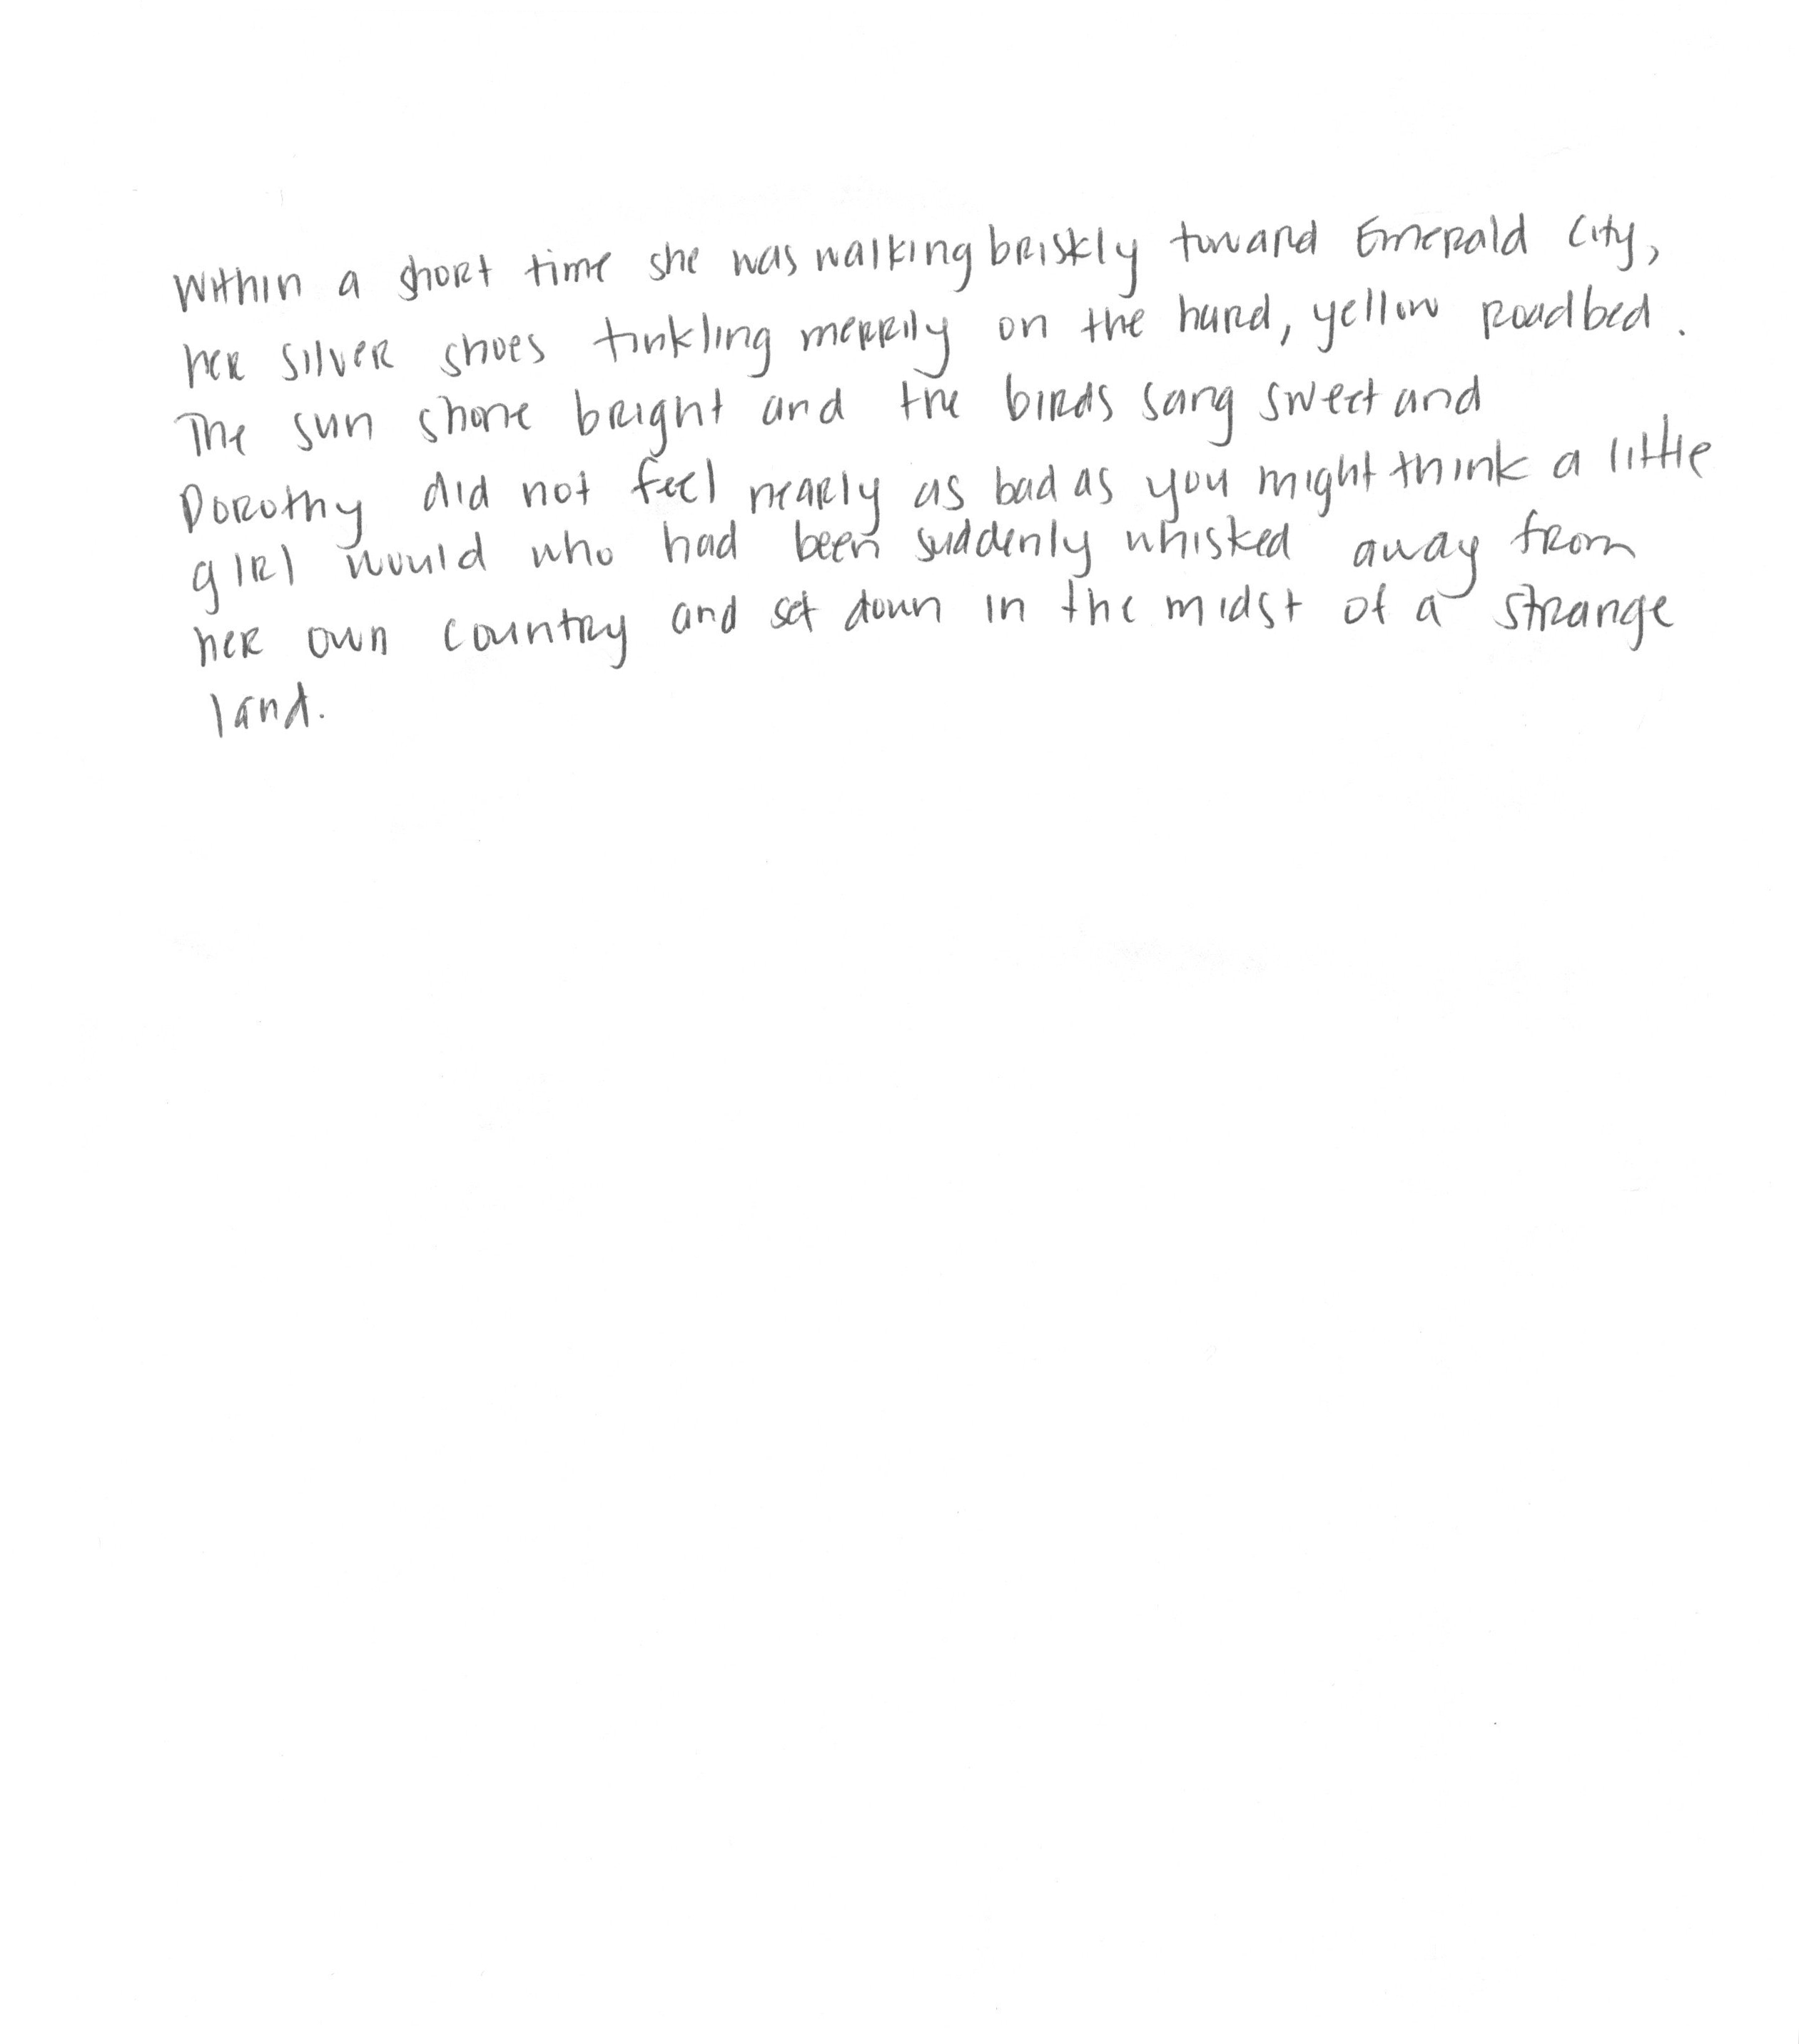 Within a short time she was walking briskly toward Emerald City,
her silver shoes tinkling merrily on the hard, yellow roadbed.
The sun shone bright and the birds sang sweet and
Dorothy did not feel nearly as bad as you might think a little
girl would who had been suddenly whisked away from
her own country and set down in the midst of a strange
land.